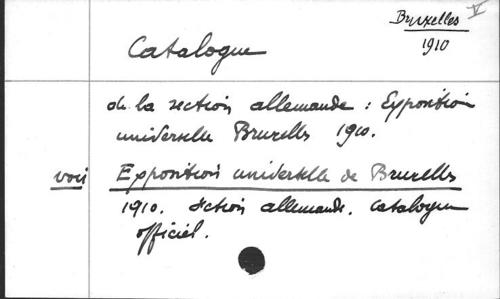 Bruxelles V
1910
Catalogue
de la section allemande : Exposition
universelle Bruxelles 1910.
voir Exposition universelle de Bruxelles
1910. Section allemande. Catalogue
officiel.